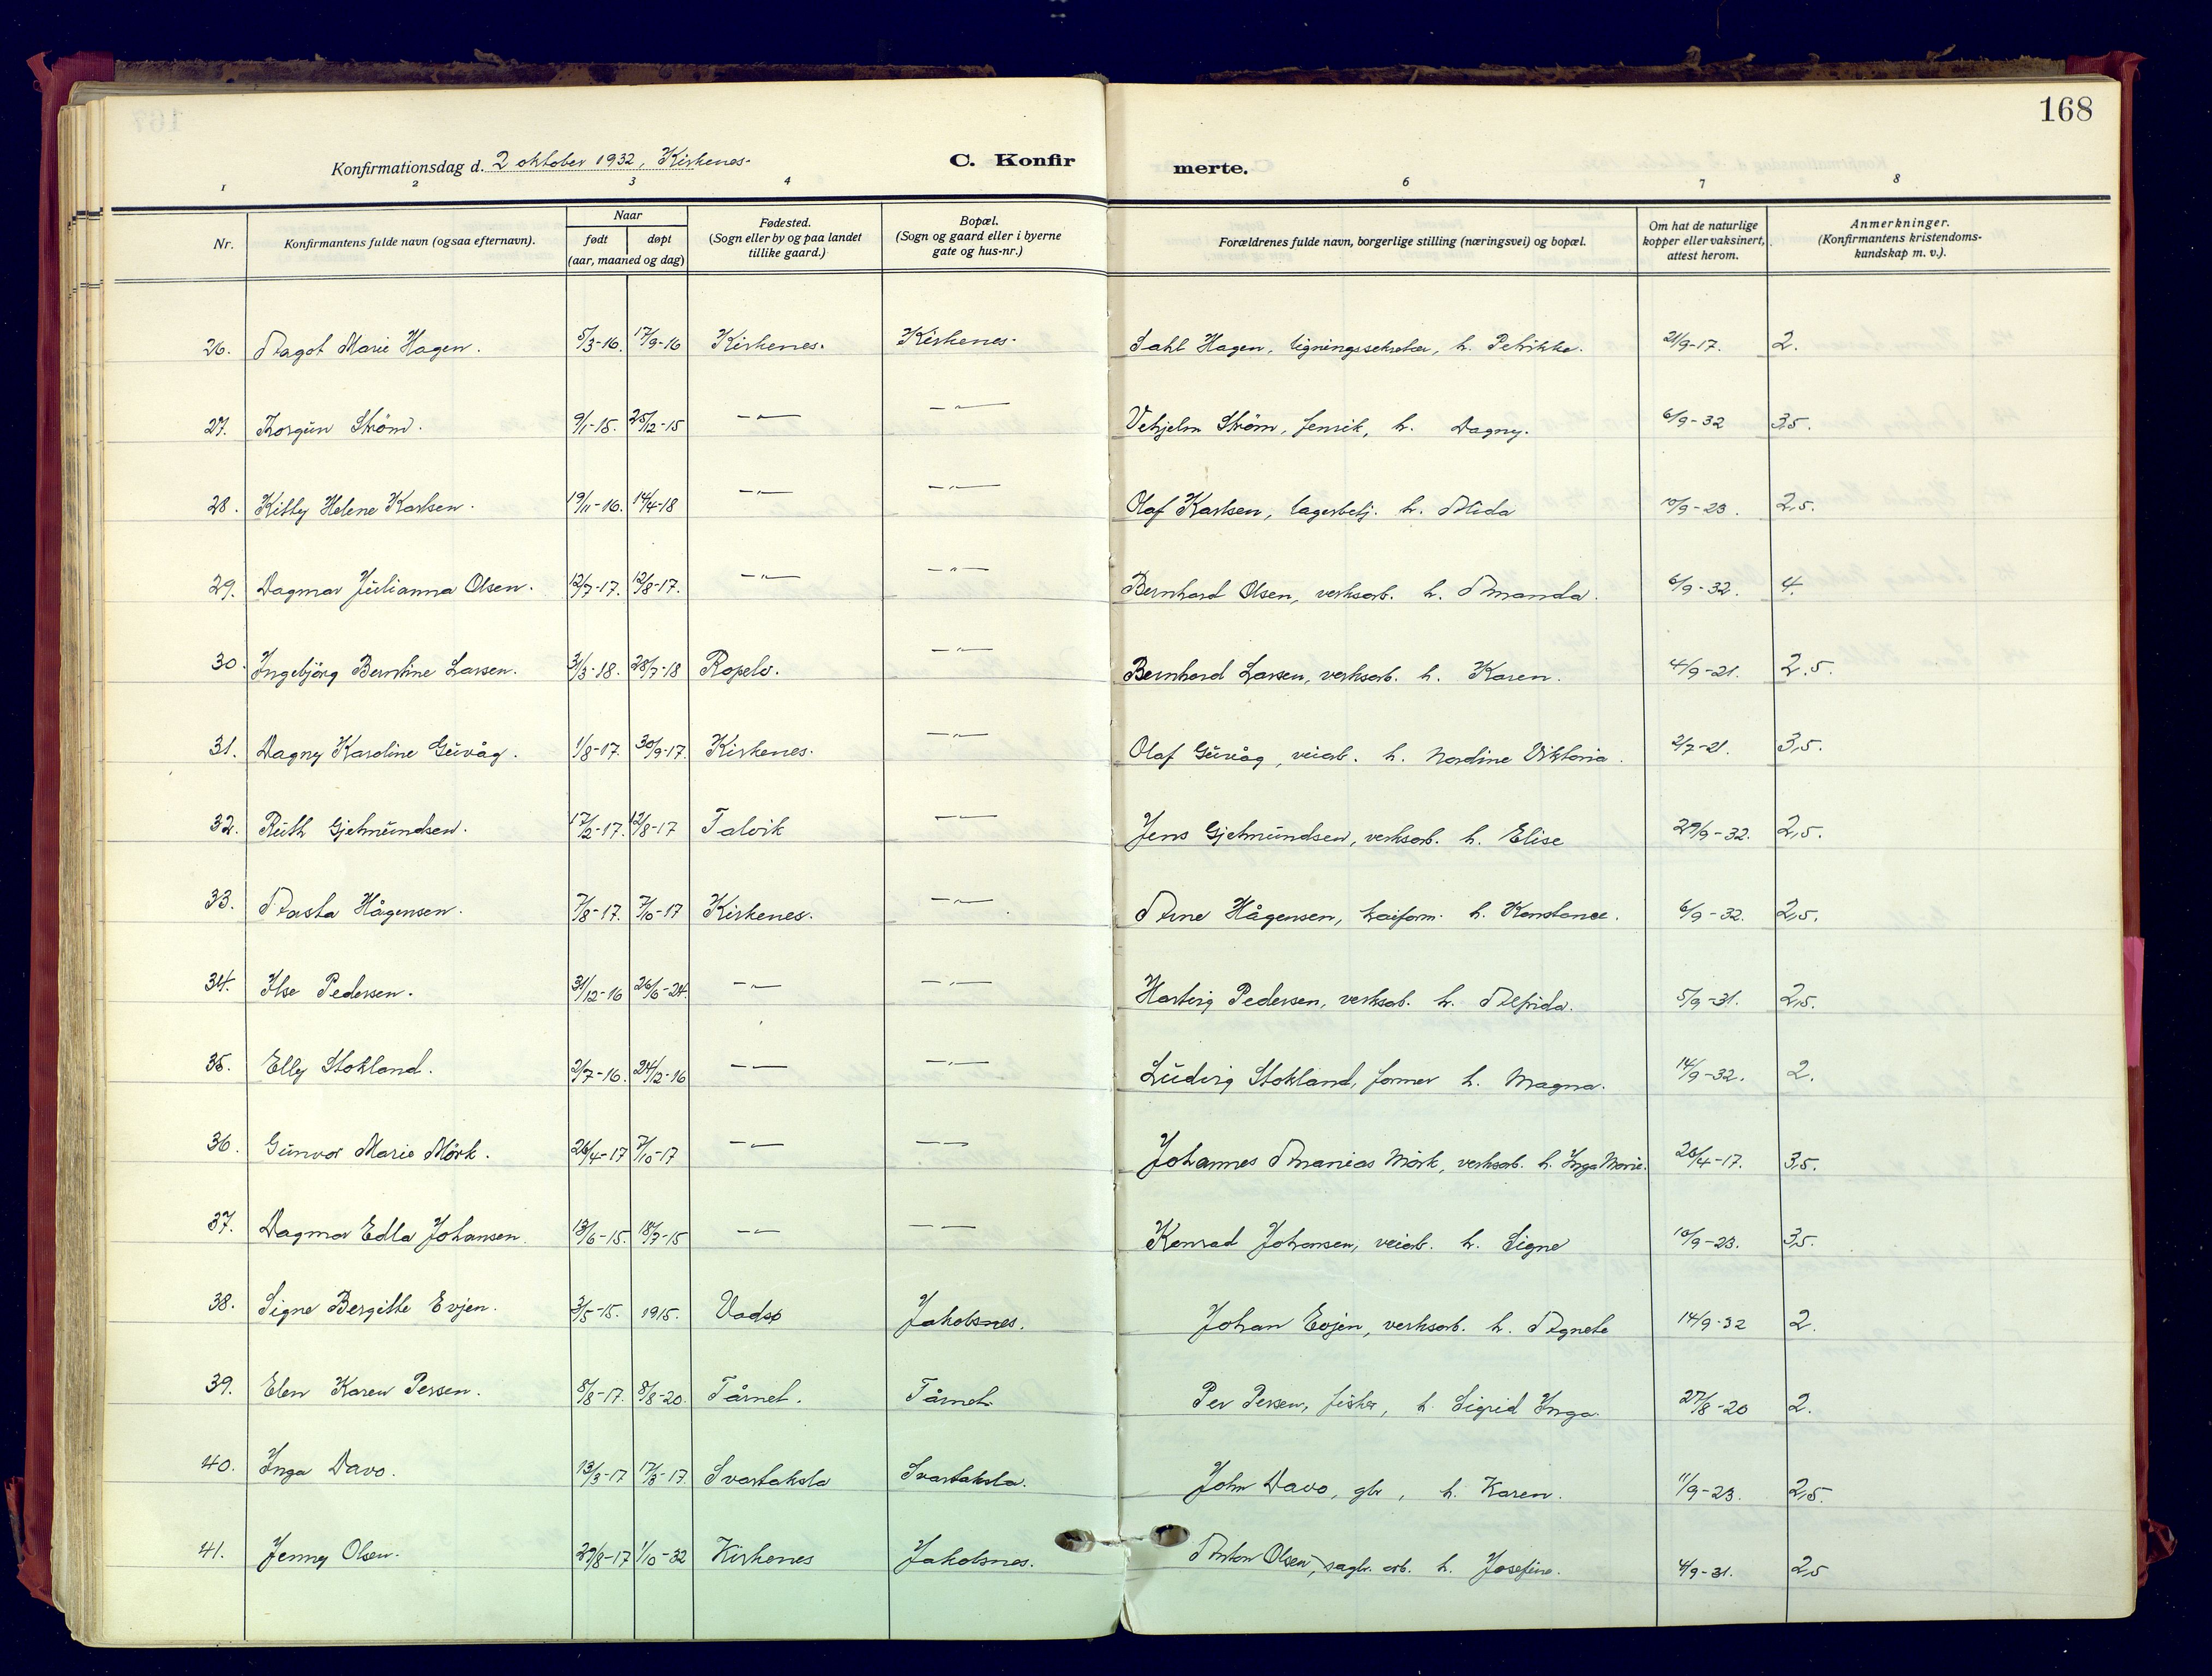 168
Konfirmationsdag d. 2 oktober 1932, Kirkenes.
C. Konfirmerte.
1 2 3 4 6 7 8
Nr. | Konfirmantens fulde navn (ogsaa efternavn). | Naar født døpt (aar, maaned og dag) | Fødested. (Sogn eller by og paa landet tillike gaard.) | Bopæl. (Sogn og gaard eller i byerne gate og hus-nr.) | Forældrenes fulde navn, borgerlige stilling (næringsvei) og bopæl. | Om hat de naturlige kopper eller vaksinert, attest herom. | Anmerkninger. (Konfirmantens kristendoms-kundskap m. v.).
26. Aagot Marie Hagen. 5/3-16. 17/9-16 Kirkenes. Kirkenes. Dahl Hagen, ligningssekretær, h. Petrikke. 21/9-17. 2.
27. Torgun Ström. 9/1-15. 25/12-15 —"— —"— Ström, fenrik, h. Dagny. 6/9-32 3,5.
28. Kitty Helene Karlsen. 19/11-16. 14/4-18 —"— —"— Olaf Karlsen, lagerbetj. h. Alida 10/9-23. 2,5.
29. Dagmar Julianna Olsen. 12/7-17. 12/8-17. —"— —"— Bernhard Olsen, verksarb. h. Amanda. 6/9-32. 4.
30. Ingebjörg Berntine Larsen. 31/3-18. 28/7-18 Ropelv. —"— Bernhard Larsen, verksarb. h. Karen. 4/9-21. 2,5.
31. Dagny Karoline Guvåg. 1/8-17. 30/9-17. Kirkenes. —"— Olaf Guvåg, veiarb. h. Nordine Viktoria. 2/7-21. 3,5.
32. Ruth Gjetmundsen. 17/2-17. 12/8-17 Talvik —"— Jens Gjetmundsen, verksarb. h. Elise 29/9-32. 2,5.
33. Aasta Hågensen. 7/8-17. 7/10-17 Kirkenes. —"— Arne Hågensen, h. Konstance. 6/9-32. 2,5.
34. Ilse Pedersen. 31/12-16 26/6-24. —"— —"— Hartvig Pedersen, verksarb. h. Alfrida. 5/9-31. 2,5.
35. Elly Stokland. 2/7-16. 24/12-16 —"— —"— Ludvig Stokland, former h. Magna. 14/9-32. 2.
36. Gunvor Marie Mörk. 26/4-17 7/10-17 —"— —"— Johannes Ananias Mörk, verksarb. h. Inga Marie. 26/4-17. 3,5.
37. Dagmar Edla Johansen. 13/6-15. 18/7-15 —"— —"— Konrad Johansen, veiarb. h. Signe 10/9-23. 3,5.
38. Signe Bergitte Evjen. 3/5-15. 1915. Vadsø Jakobsnes. Johan Evjen, verksarb. h. Agnete 14/9-32 2.
39. Elen Karen Persen. 8/8-17. 8/8-20. Tårnet. Tårnet. Per Persen, fisker, h. Sigrid Inga. 27/8-20 2.
40. Inga Davo. 13/3-17 17/3-17. Svartaksla Svartaksla. John Davo, gbr, h. Karen. 11/9-23. 2,5.
41. Jenny Olsen. 29/8-17 1/10-32 Kirkenes Jakobsnes. Anton Olsen, sagbr. arb. h. Josefine. 4/9-31. 2,5